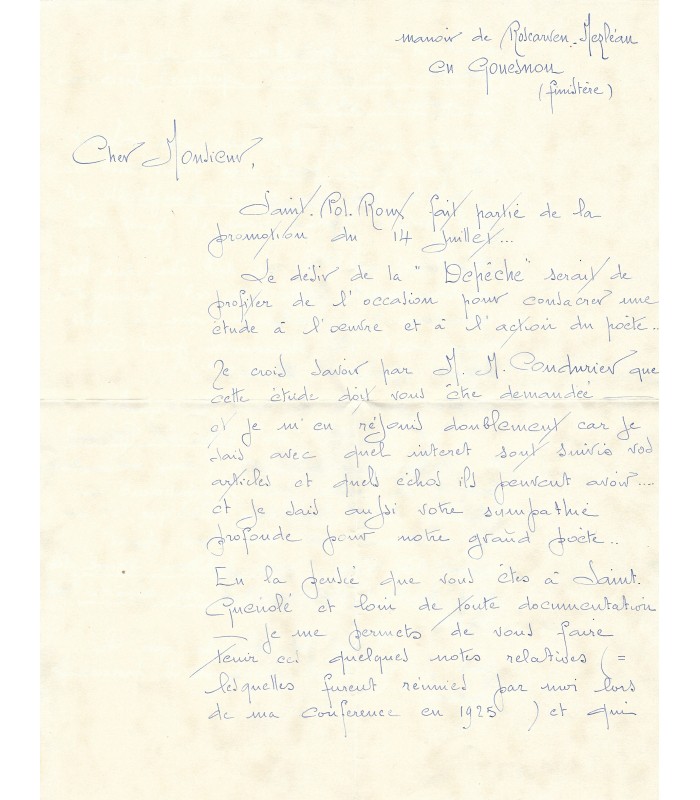 manoir de Roscarven-Mezléan
en Gouesnou
(finistère)
Cher Monsieur,
Saint. Pol. Roux fait partie de la
promotion du 14 Juillet...
Le désir de la " Depêche" serait de
profiter de l'occasion pour consacrer une
étude à l'œuvre et à l'action du poète..
Je crois savoir par M. M. Coudurier que
cette étude doit vous être demandée —
et je m'en réjouis doublement car je
sais avec quel interet sont suivis vos
articles et quels échos ils peuvent avoir....
et je sais aussi votre sympathie
profonde pour notre grand poète..
En la pensée que vous êtes à Saint.
Guénolé et loin de toute documentation
— je me permets de vous faire
tenir ces quelques notes relatives (=
lesquelles furent réunies par moi lors
de ma conference en 1925 ) et qui